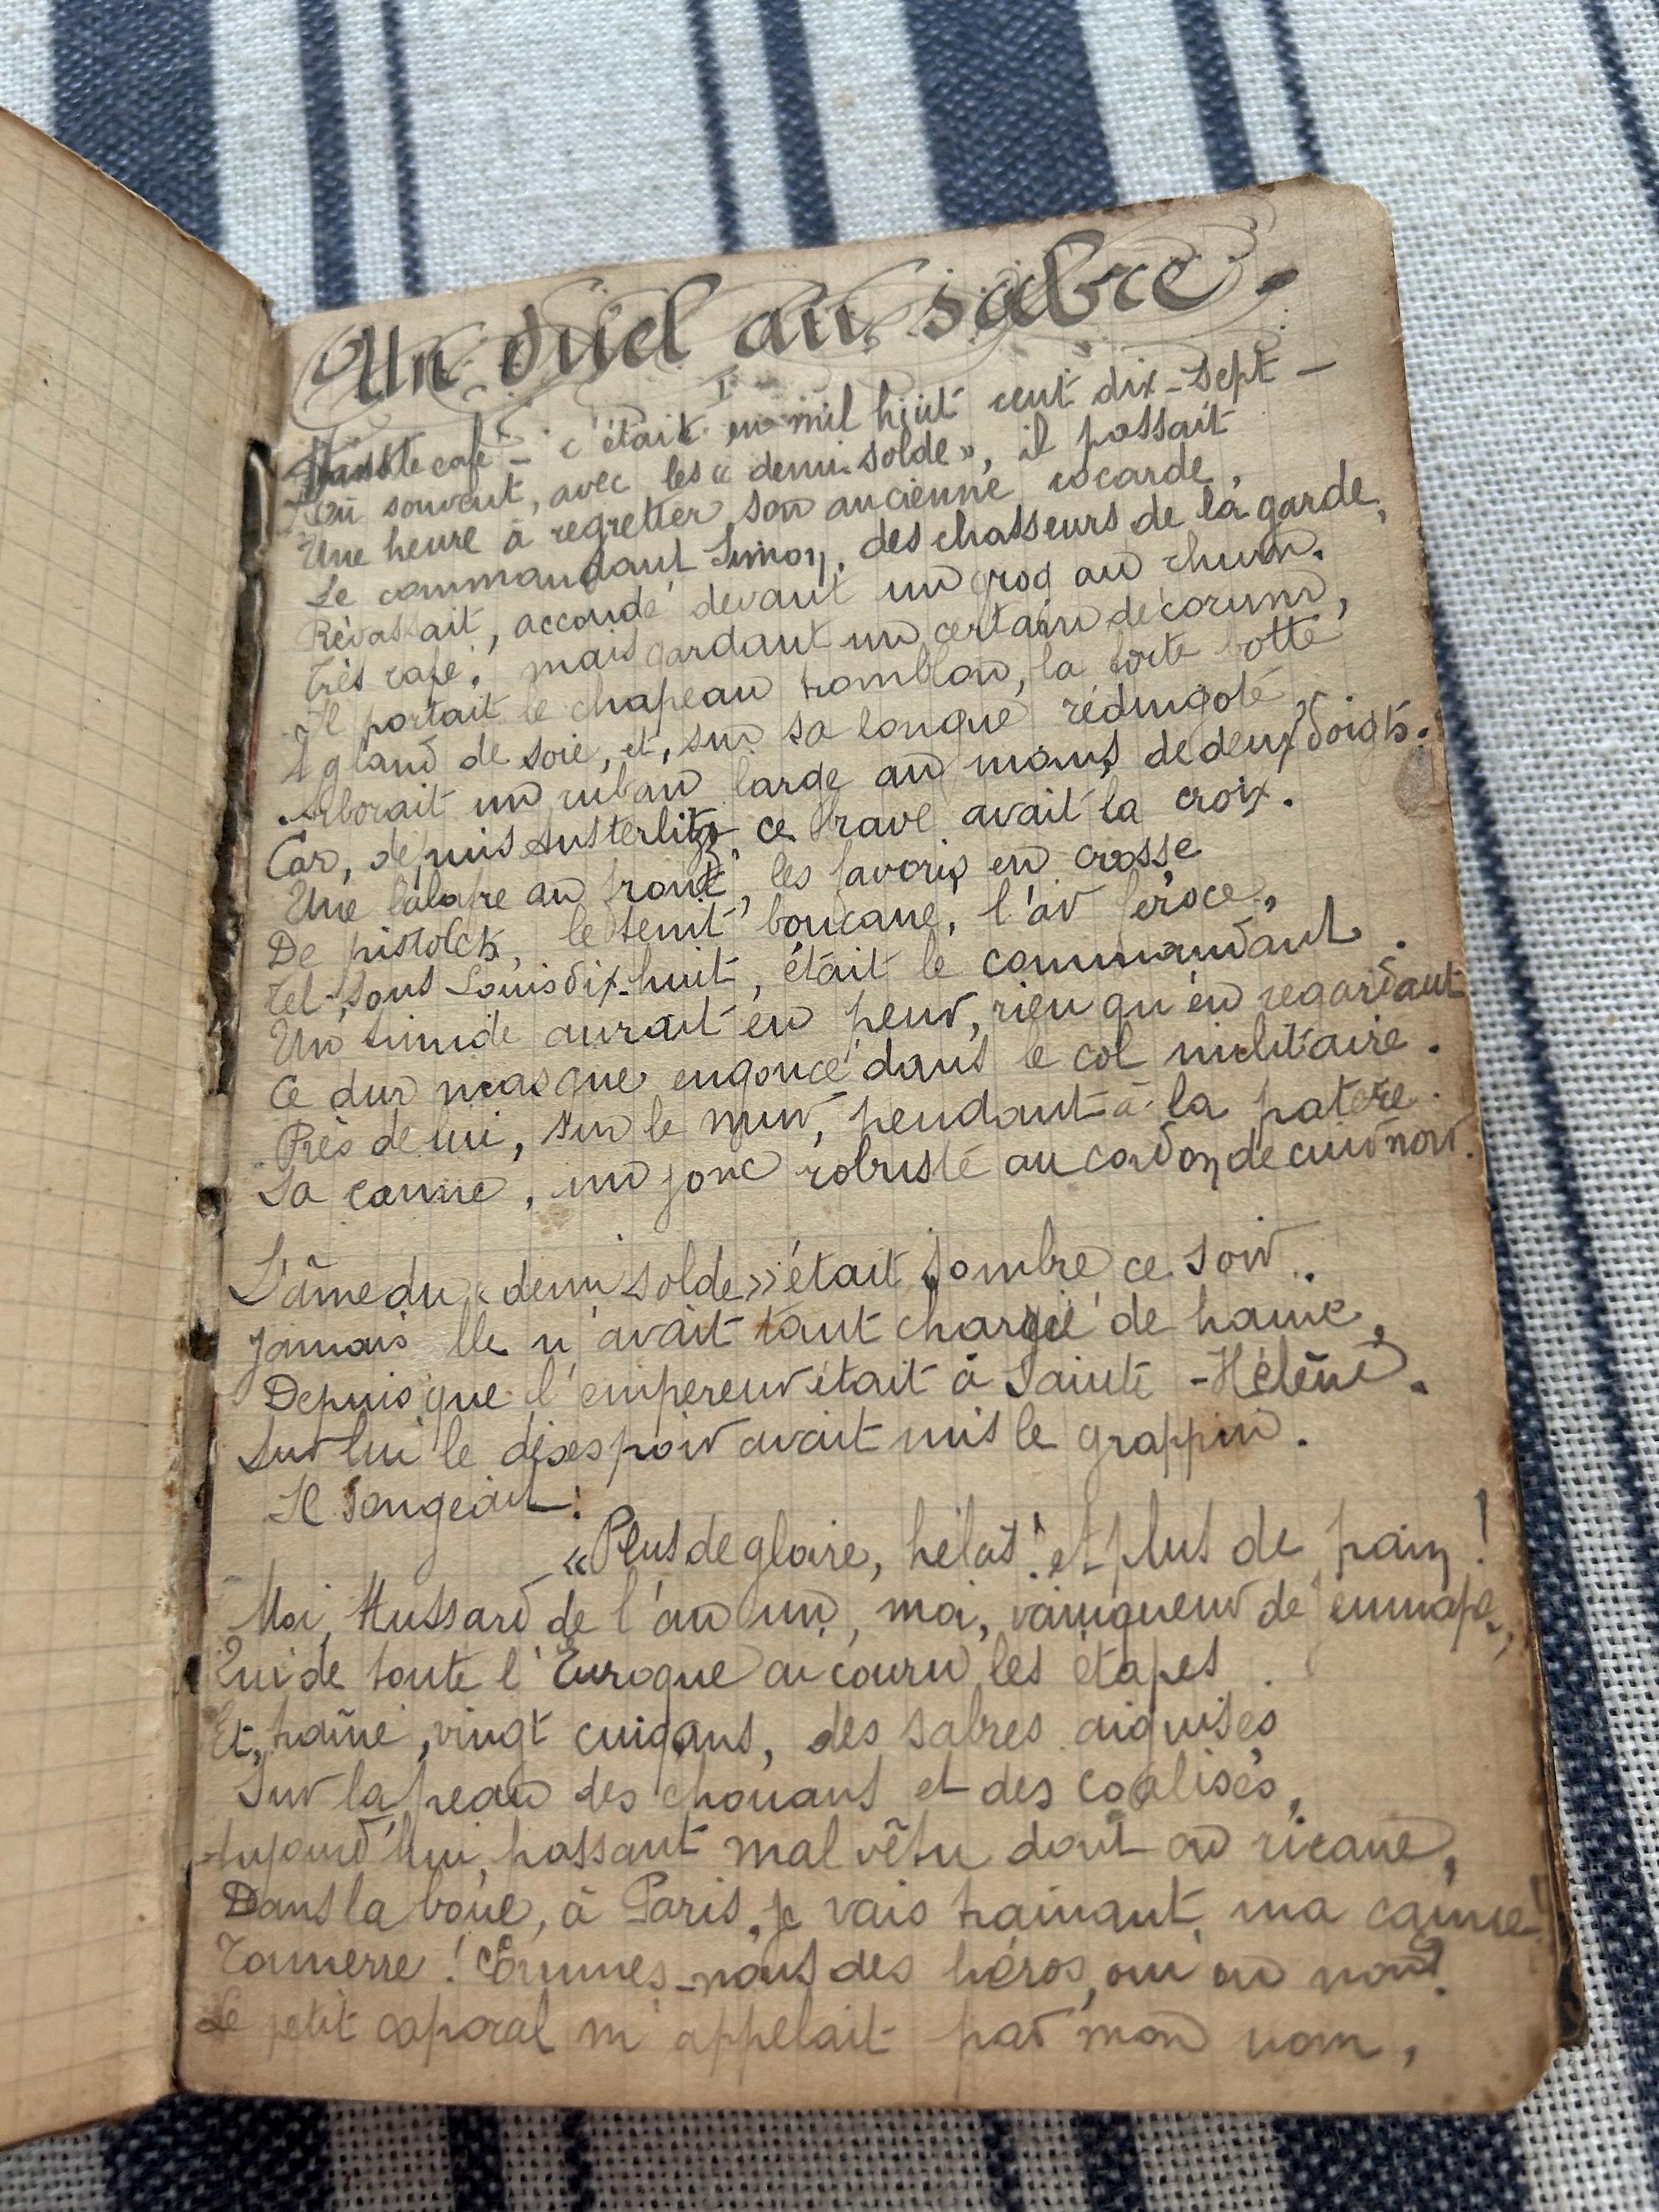 Un duel au sabre.
I
café — c'était en mil huit cent dix-sept —
Où souvent, avec les « demi-solde », il passait
Une heure à regretter son ancienne cocarde,
Le commandant Simon, des chasseurs de la garde,
Rêvassait, accoudé devant un grog au rhum.
Très rapé, mais gardant un certain décorum,
Il portait le chapeau tromblon, la forte botte
A gland de soie, et, sur sa longue redingote,
Arborait un ruban large au moins de deux doigts.
Car, depuis Austerlitz, ce brave avait la croix.
Une balafre au front, les favoris en crosse
De pistolets, le teint boucané, l'air féroce,
Tel, sous Louis dix-huit, était le commandant.
Un timide aurait eu peur, rien qu'en regardant
Ce dur masque engoncé dans le col militaire.
Près de lui, sur le mur, pendant à la patère.
Sa canne, un jonc robuste au cordon de cuir noir.
L'âme du « demi solde » était sombre ce soir.
Jamais lle n'avait tant chargé de haine,
Depuis que l'empereur était à Sainte-Hélène.
Sur lui le désespoir avait mis le grappin.
Il songeait:
« Plus de gloire, hélas! et plus de pain!
Moi, Hussard de l'an un, moi, vainqueur de
Qui de toute l'Europe ai couru les étapes
Et, traîné, vingt cinq ans, des sabres aiguisés
Sur la peau des chouans et des coalisés,
Aujourd'hui, passant mal vêtu dont on ricane,
Dans la boue, à Paris, je vais traînant ma canne!
Tonnerre! Sommes-nous des héros, oui ou non?
Le petit caporal m'appelait par mon nom,